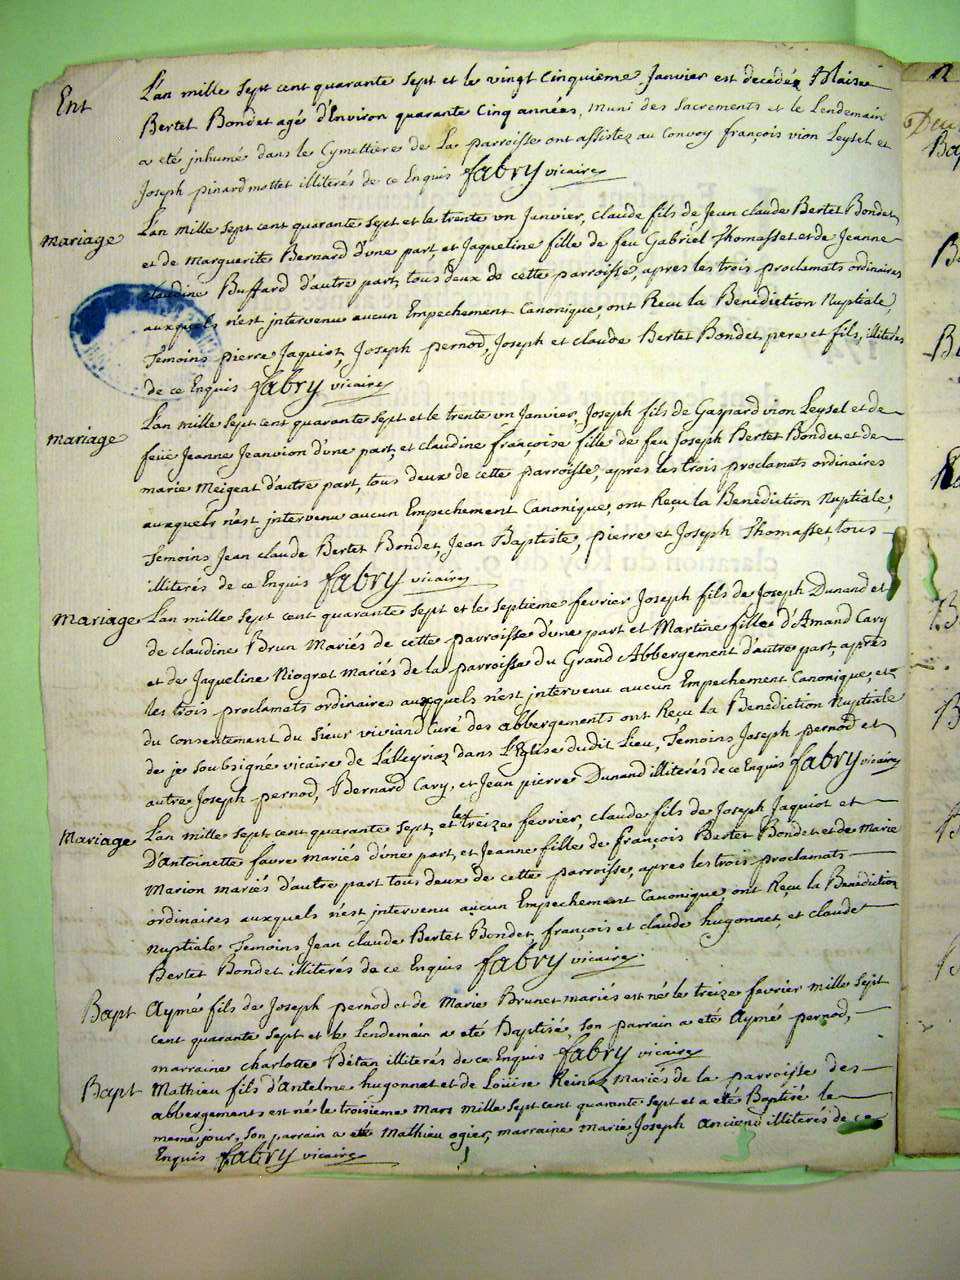 Ent
L'an mille sept cent quarante sept et le vingt cinquieme Janvier est decedéz Blaise
Bertet Bondet agé d'Environ quarante Cinq années, muni des Sacrements et le Lendemain
a eté jnhumé dans le Cymettiere de La parroisse ont assistez au Convoy françois vion Leysel et
Joseph pinard mottet illiterés de ce Enquis fabry vicaire
Mariage
L'an mille sept cent quarante sept et le trente vn Janvier, claude fils de Jean claude Bertet Bondet,
et de Marguerite Bernard d'une part, et Jaqueline fille de feu Gabriel Thomasset et de Jeanne
claudine Buffard d'autre part, tous deux de cette parroisse, apres les trois proclamats ordinaires
auxquels n'est jntervenu aucun Empechement Canonique, ont Reçu la Benediction Nuptiale,
Temoins pierre Jaquiot, Joseph pernod, Joseph et claude Bertet Bondet pere et fils, illiterés
de ce Enquis fabry vicaire
Mariage
L'an mille sept cent quarante sept et le trente vn Janvier, Joseph fils de Gaspard vion Leysel et de
feüe Jeanne Jeanvion d'une part, et claudine françoise fille de feu Joseph Bertet Bondet et de
marie Meigeat d'autre part, tous deux de cette parroisse, apres les trois proclamats ordinaires
auxquels n'est jntervenu aucun Empechement Canonique, ont Reçu la Benediction Nuptiale,
Temoins Jean claude Bertet Bondet, Jean Baptiste, pierre et Joseph Thomasset, tous
illiterés de ce Enquis fabry vicaire
Mariage
L'an mille sept cent quarante sept et le septieme fevrier Joseph fils de Joseph Dunand et
de claudine Brun Mariés de cette parroisse d'une part et Martine fille d'Amand Cary
et de Jaqueline Niogret mariés de la parroisse du Grand Abbergement d'autre part, apres
les trois proclamats ordinaires auxquels n'est jntervenu aucun Empechement Canonique, et
du consentement du Sieur viviand Curé des abbergements ont Reçu La Benediction Nuptiale
de je soubsigné vicaire de Lalleyriaz dans L'Eglise dudit Lieu, Temoins Joseph pernod et
autre Joseph pernod, Bernard Cary, et Jean pierre Dunand illiterés de ce Enquis fabry vicaire
Mariage
L'an mille sept cent quarante sept, et le treize fevrier, claude fils de Joseph Jaquiot et
d'Antoinette favre mariés d'une part, et Jeanne fille de françois Bertet Bondet et de Marie
Marion mariés d'autre part tous deux de cette parroisse, apres les trois proclamats
ordinaires auxquels n'est jntervenu aucun Empechement Canonique, ont Reçu la Benediction
Nuptiale Temoins Jean claude Bertet Bondet, françois et claude hugonnet, et claude
Bertet Bondet illiterés de ce Enquis fabry vicaire
Bapt
Aymé fils de Joseph pernod et de Marie Brunet mariés est né le treize fevrier mille sept
cent quarante sept et le Lendemain a eté Baptisé, son parrain a eté Aymé pernod,
marraine charlotte Bétan illiterés de ce Enquis fabry vicaire
Bapt
Mathieu fils d'Antelme hugonnet et de Loüise mariés de la parroisse des
abbergements est né le troisieme Mars mille sept cent quarante sept et a eté Baptisé le
meme jour, son parrain a eté Mathieu ogier, marraine Marie Joseph illiterés de ce
Enquis fabry vicaire